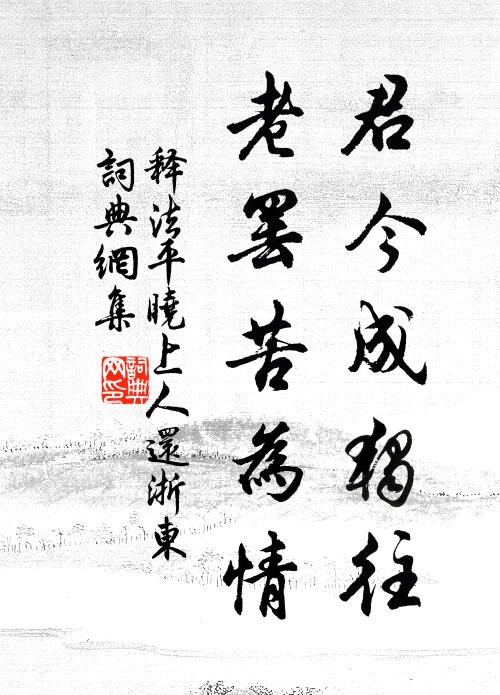 君今成獨往
老罢苦為情
释法平曉上人還浙東
詞典網集
詞典网印